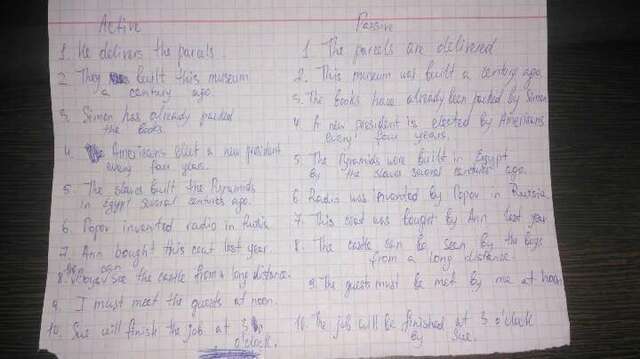 Active
1. He delivers the parcels.
2. They built this museum
a century ago.
3. Simon has already packed
the books.
4. Americans elect a new president
every four years.
5. The slaves built the Pyramids
in Egypt several centuries ago.
6. Popov invented radio in Russia.
7. Ann bought this coat last year.
8. The boys can see the castle from a long distance.
9. I must meet the guests at noon.
10. Sue will finish the job at 3
o'clock.
Passive
1. The parcels are delivered
2. This museum was built a century ago.
3. The books have already been packed by Simon
4. A new president is elected by Americans
every four years.
5. The Pyramids were built in Egypt
by the slaves several centuries ago.
6. Radio was invented by Popov in Russia.
7. This coat was bought by Ann last year
8. The castle can be seen by the boys
from a long distance.
9. The guests must be met by me at noon
10. The job will be finished at 3 o'clock
by Sue.